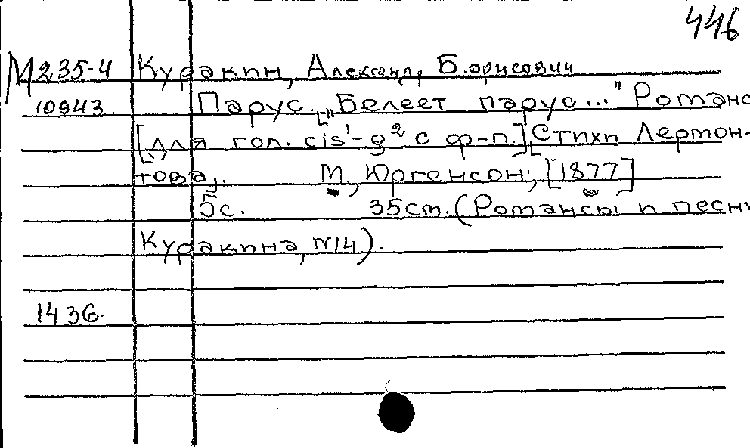 446
М 235-4 Куракин, Александр Борисович
10943 Парус. ["Белеет парус..." Романс
[для гол. cis¹-g² с ф-п.] Стихи Лермон-
това. М, Юргенсон, [1877]
5с. 35см. (Романсы и песни
Куракина, N14).
1436.